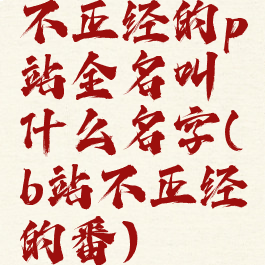 不正经的p
站全名叫
什么名字(
b站不正经
的番)